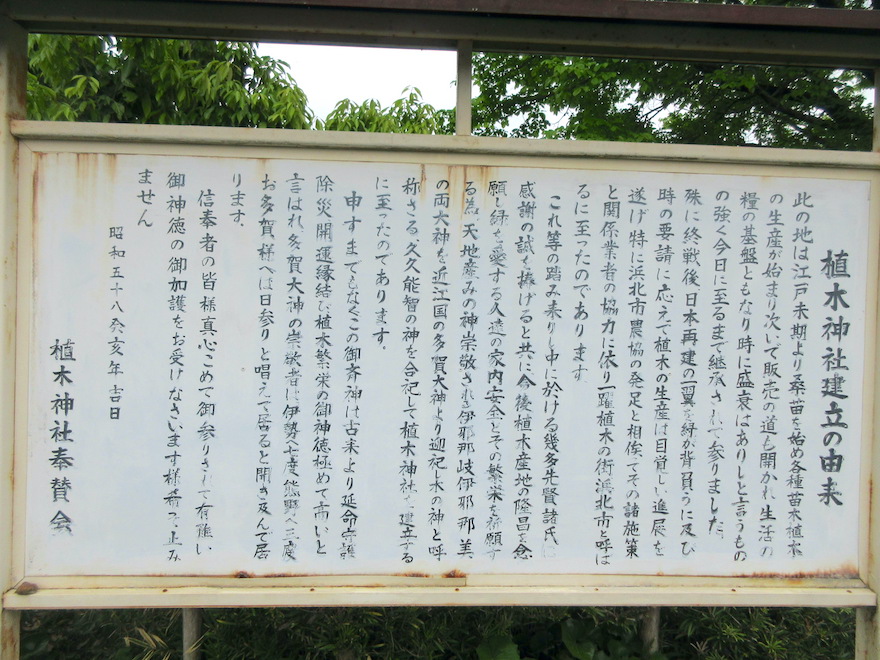 植木神社建立の由来
此の地は江戸末期より桑苗を始め各種苗木植木
の生産が始まり次いで販売の道も開かれ生活の
糧の基盤ともなり時に盛衰はありしと言うもの
の強く今日に至るまで継承されて参りました
殊に終戦後日本再建の一翼を緑が背負うに及び
時の要請に応えて植木の生産は目覚しい進展を
遂げ特に浜北市農協の発足と相俟ってその諸施策
と関係業者の協力に依り一躍植木の街浜北市と呼ば
るに至ったのであります
これ等の踏み来りし中に於ける幾多先賢諸氏に
感謝の誠を捧げると共に今後植木産地の隆昌を念
願し緑を愛する人達の家内安全とその繁栄を祈願す
る為、天地産みの神崇敬される伊邪那岐伊邪那美
の両大神を近江国の多賀大神より迎祀し木の神と呼
称さる久久能智の神を合祀して植木神社を建立する
に至ったのであります。
申すまでもなくこの御斉神は古来より延命守護
除災開運縁結び植木繁栄の御神徳極めて高いと
言はれ多賀大神の崇敬者は伊勢へ七度熊野へ三度
お多賀様へは日参りと唱えて居ると聞き及んで居
ります。
信奉者の皆様真心こめて御参りされて有難い
御神徳の御加護をお受けなさいます様希って止み
ません
昭和五十八癸亥年吉日
植木神社奉賛会